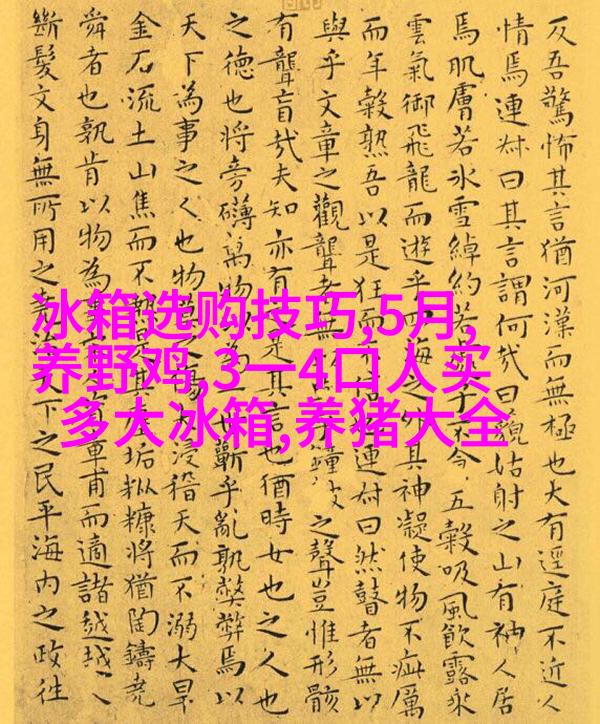 冰箱选购技巧,5月,
养野鸡,3一4口人买
多大冰箱,养猪大全
反吾驚怖其言猶河漢而無極也大有逕庭不近人
情焉連叔曰其言謂何哉曰藐姑射之山有神人居
焉肌膚若冰雪綽約若子不五穀吸風飲露乘
雲氣御飛龍而遊乎四海之外其神凝使物不疵厲
而年穀熟吾以是狂而連叔曰然瞽者無以
與乎文章之觀聾者無鐘之聲豈惟形骸
有聾盲哉夫知亦有是其言也猶時女也之人也
之德也將旁礴萬物以為一世蘄乎亂孰弊弊焉以
天下為事之人也物浸稽天而不溺大旱
金石流土山焦而不垢粃糠將猶陶鑄堯
舜者也孰肯以物為事章甫而適諸越越人
斷髮文身無所用之堯天下之民平海内之政往